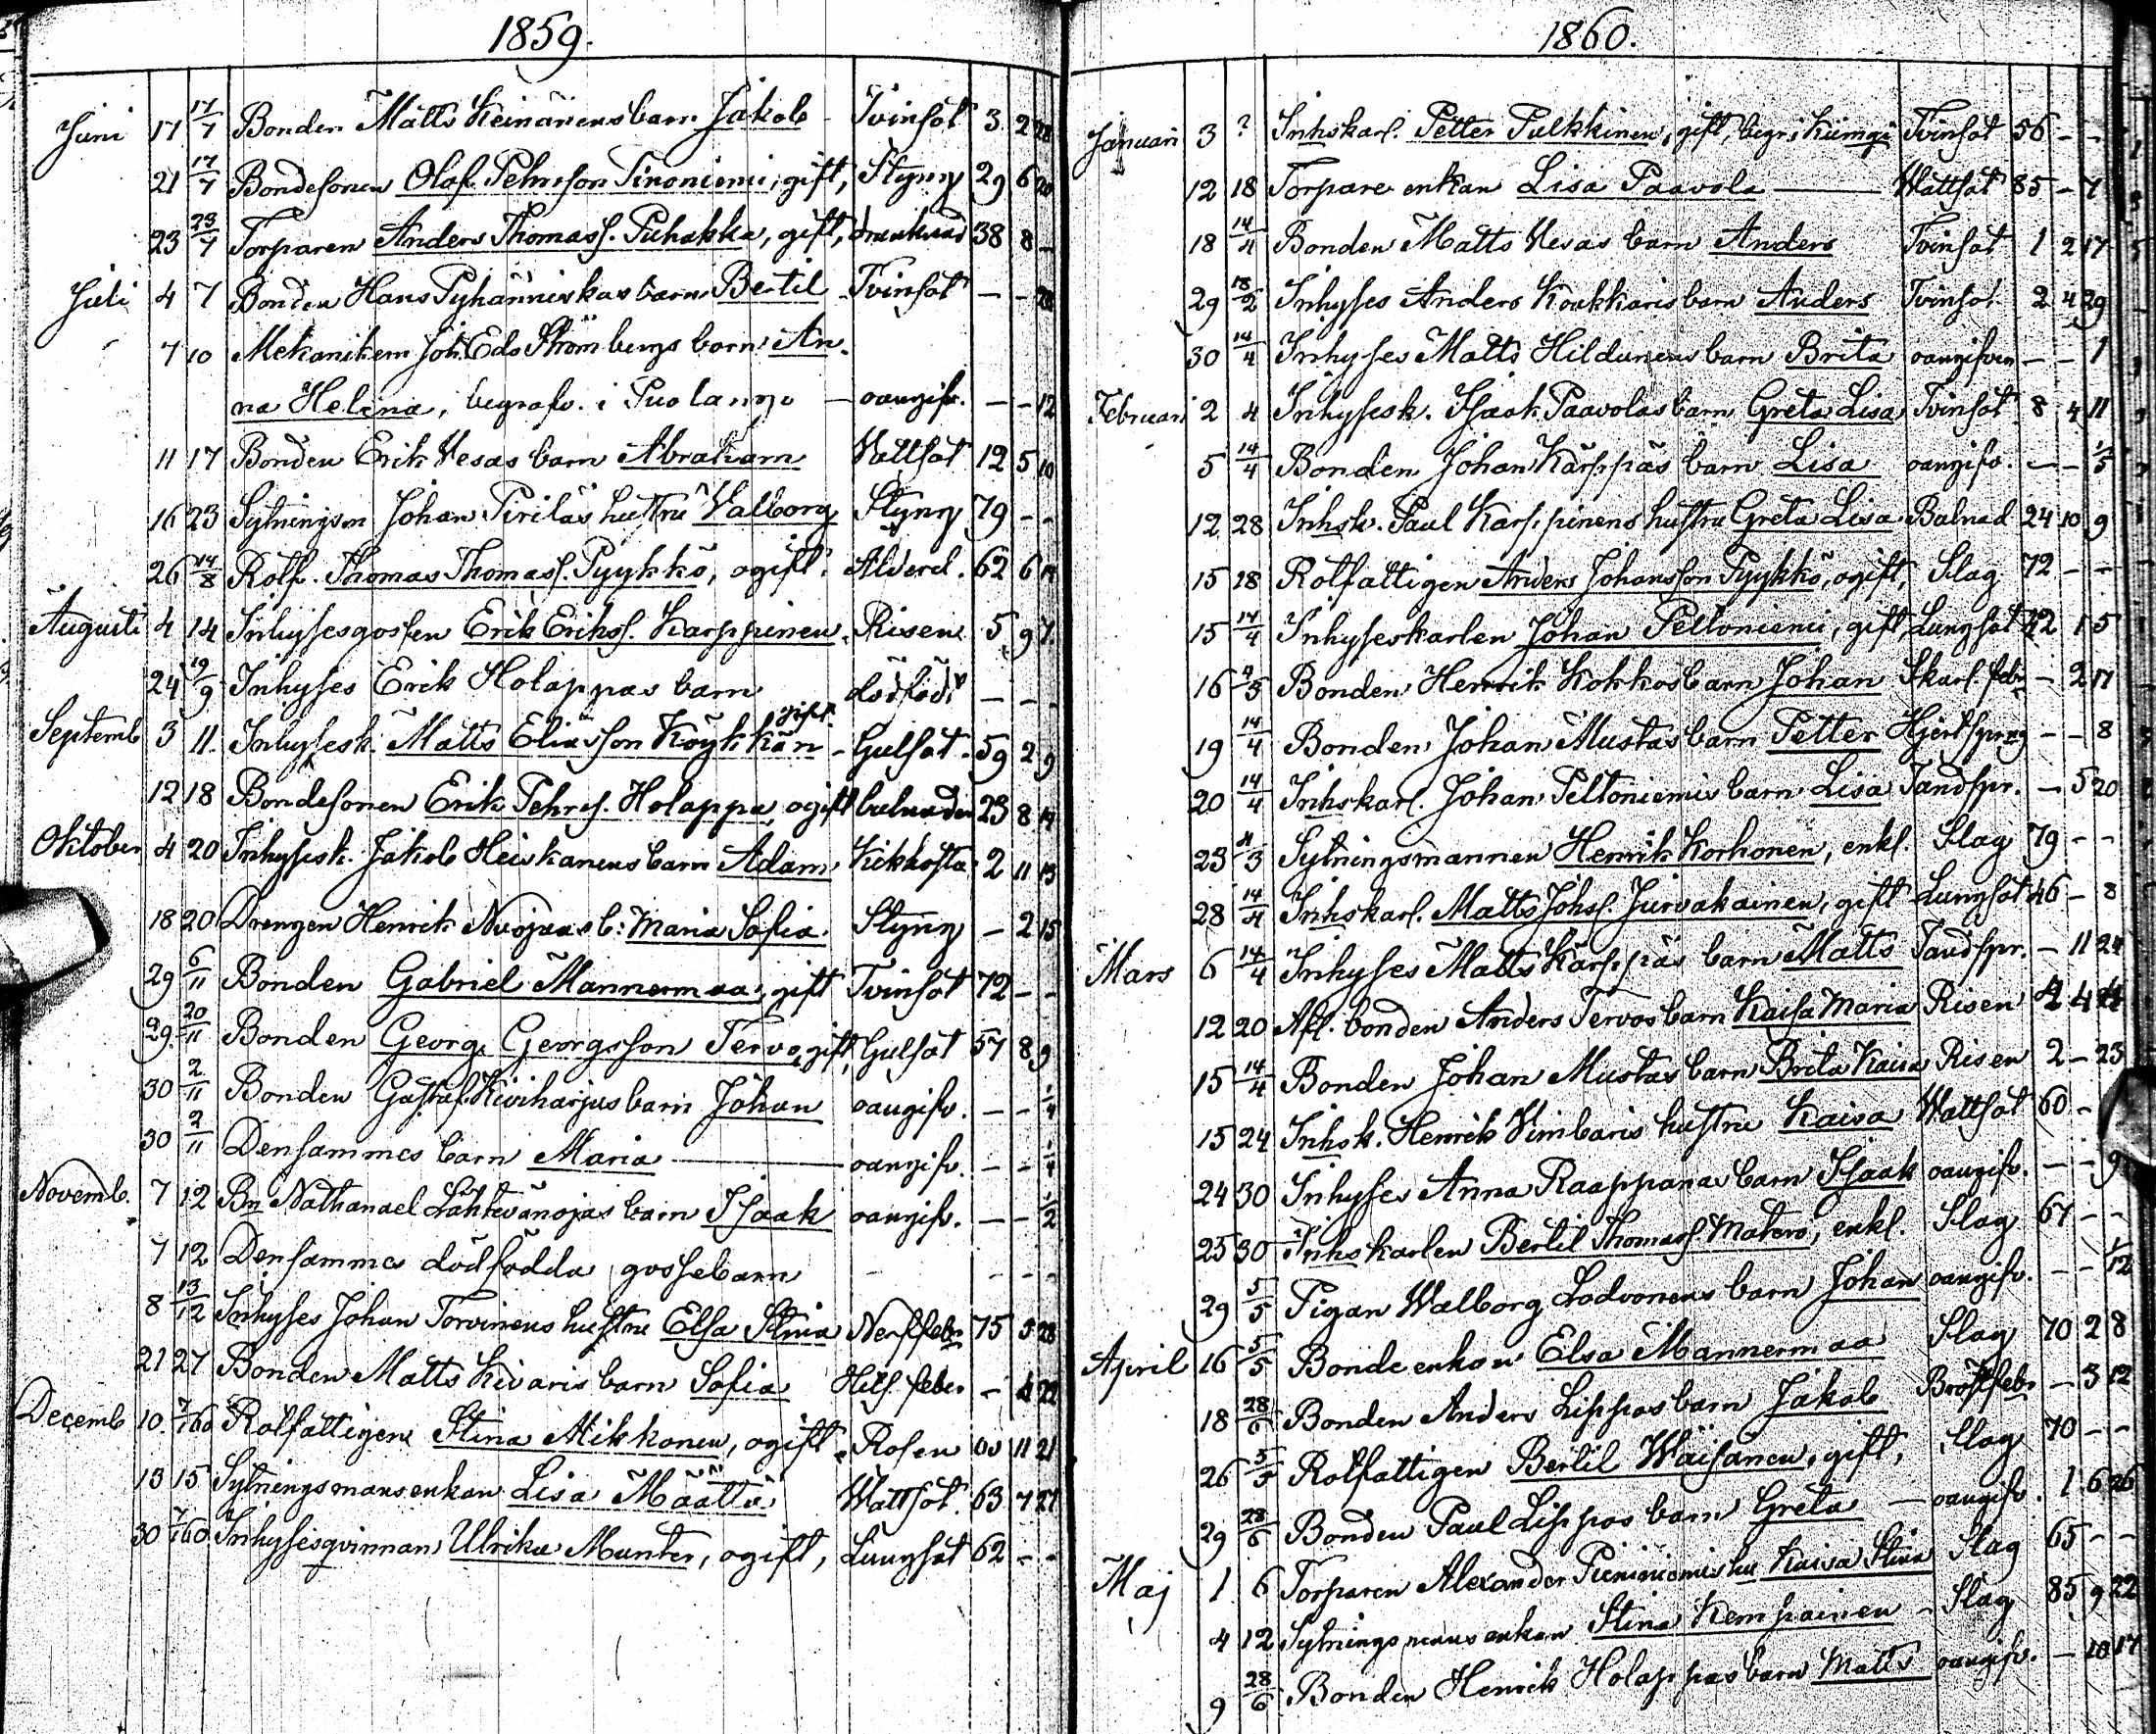 1859.
Juni 17 17/7 Bonden Matts Keinänens barn Jakob Tvinsot 3 2 28
21 17/7 Bondesonen Olof Pehrsson Tinoniemi, gift, Styng 29 6 20
23 23/7 Torparen Anders Thomass. Puhakka, gift, drunknad 38 8 -
Juli 4 7 Bonden Hans Pyhänniskas barn Bertil Tvinsot - - 28
7 10 Mekanikern Joh. Ed. Strömbergs barn An-
na Helena, begrafv. i Puolango - oangifv. - - 12
11 17 Bonden Erik Vesas barn Abraham Vattsot 12 5 10
16 23 Sytningsm Johan Pirilás hustru Valborg Styng 79 - -
26 14/8 Rotf. Thomas Thomass. Pyykkö, ogift. Alderd. 62 6 14
Augusti 4 14 Inhysesgossen Erik Erikss. Karppinen. Risen 5 9 7
24 19/9 Inhyses Erik Holappas barn dödfödt - - -
Septemb 3 11. Inhysesk. Matts Eliasson Köykkän gift. - Gulsot. 59 2 9
12 18 Bondesonen Erik Pehrs. Holappa, ogift bulnader 23 8 14
Oktober 4 20 Inhysesk. Jakob Heiskanens barn Adam Kikhosta 2 11 13
18 20 Drengen Henrik Nuojuas b: Maria Sofia. Styng - 2 15
29 6/11 Bonden Gabriel Mannermaa, gift Tvinsot 72 - -
29. 20/11 Bonden Georg Georgsson Tervo, gift, Gulsot 57 8 9
30 2/11 Bonden Gustaf Kiviharjus barn Johan oangifv. - - 1/4
30 2/11 Densammes barn Maria - oangifv. - - 1/4
Novemb. 7 12 Bn Nathanael Lahtevänojas barn Isaak oangifv. - - 1/2
7 12 Densammes dödfödda gossebarn - - - -
8 13/12 Inhyses Johan Torvinens hustru Elsa Stina Nerffeber 75 3 28
21 27 Bonden Matts Kivaris barn Sofia Hets. feber - 4 22
Decemb 10. 7/1 60 Rotfattigen Stina Mikkonen, ogift. Rosen 60 11 21
13 15 Sytningsmansenkan Lisa Määttä Vattsot. 63 7 27
30 7/1 60 Inhysesqvinnan Ulrika Munter, ogift, Lungsot 62 - -
1860.
Januari 3 ? Inhskarl. Petter Pulkkinen, gift, begr. i Kiimgi Tvinsot 56 - -
12 18 Torpare enkan Lisa Paavola - Wattsot 85 - 7
18 14/4 Bonden Matts Vesas barn Anders Tvinsot 1 2 17
29 18/2 Inhyses Anders Koukkaris barn Anders Tvinsot. 2 4 29
30 14/4 Inhyses Matts Hildunens barn Brita oangifven - - 1
Februari 2 4 Inhysesk. Isaak Paavolas barn Greta Lisa Tvinsot 8 4 11
5 14/4 Bonden Johan Kärppäs barn Lisa oangifv. - - 1/5
12 28 Inhsk. Paul Karppinens hustru Greta Lisa Bulnad 24 10 9
15 28 Rotfattigen Anders Johansson Pyykkö, ogift, Slag 72 - -
15 14/4 Inhyseskarlen Johan Peltoniemi, gift Lungsot 42 1 5
16 4/5 Bonden Henrik Kokkos barn Johan Skarl. feber - 2 17
19 14/4 Bonden Johan Mustas barn Petter Hjertsprång - - 8
20 14/4 Inhskarl. Johan Peltoniemis barn Lisa Tandspr. - 5 20
23 4/3 Sytningsmannen Henrik Korhonen, enkl. Slag 79 - -
28 14/4 Inhskarl. Matts Johss. Jurvakainen, gift Lungsot 46 - 8
Mars 6 14/4 Inhyses Matts Kärppäs barn Matts Tandspr. - 11 24
12 20 Afl. bonden Anders Tervos barn Kaisa Maria Risen 4 4
15 14/4 Bonden Johan Mustas barn Brita Kaisa Risen 2 - 23
15 24 Inhsk. Henrik Vimbaris hustru Kaisa Wattsot 60 -
24 30 Inhyses Anna Raappanas barn Isaak oangifv. - - 9
25 30 Inhskarlen Bertil Thomass. Matero, enkl. Slag 67 - -
29 5/5 Pigan Walborg Lodvonens barn Johan oangifv. - - 1/12
April 16 5/5 Bonde enkan Elsa Mannermaa Slag 70 2 8
18 28/6 Bonden Anders Lippos barn Jakob Bröstfeber - 3 12
26 5/5 Rotfattigen Bertil Wäisänen, gift, Slag 70 - -
29 28/6 Bonden Paul Lippos barn Greta - oangifv. 1 6 26
Maj 1 6 Torparen Alexander Pieniniemis hu Kaisa Stina Slag 65 - -
4 12 Sytningsmansenkan Stina Kempainen - Slag 85 9 22
9 28/6 Bonden Henrik Holappas barn Matts oangifv. - 10 17